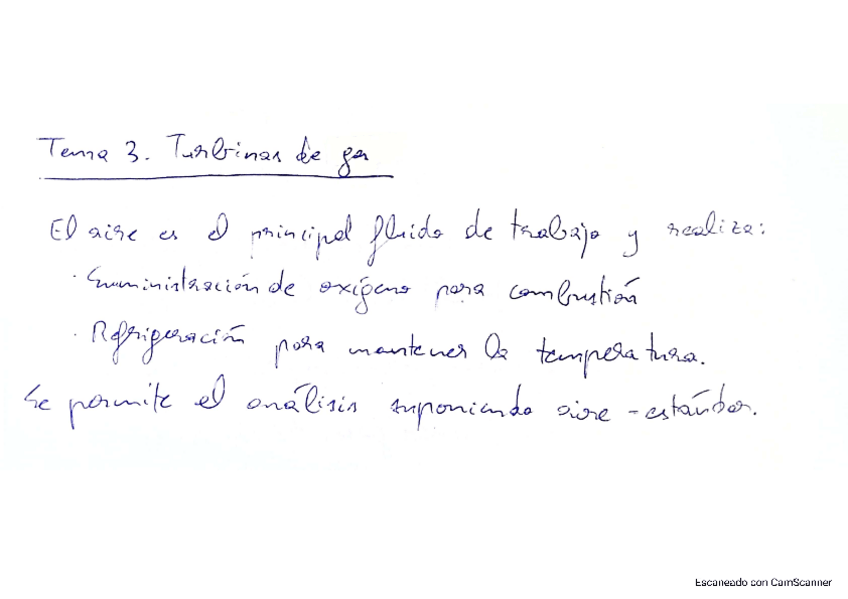 Tema 3. Turbinas de gas
El aire es el principal fluido de trabajo y realiza:
· Suministración de oxígeno para combustión
· Refrigeración para mantener la temperatura.
Se permite el análisis suponiendo aire-estándar.
Escaneado con CamScanner